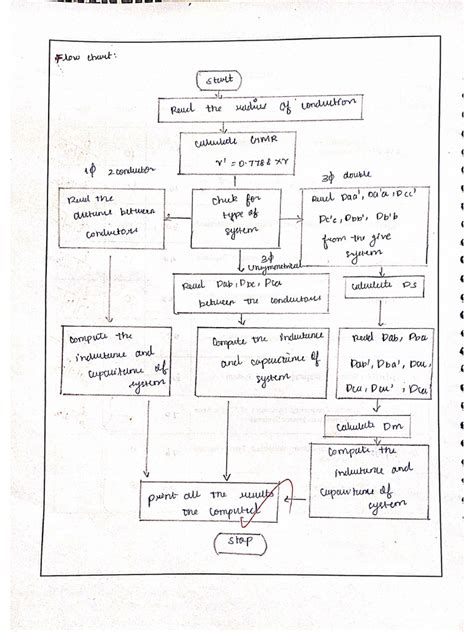 Flow chart:
start
Read the radius of conduction
calculate GMR
r' = 0.7788 xr
1ϕ 2 conductor
3ϕ double
Read the
distance between
conductors
Check for
type of
system
Read Daa', Da'a, Dcc'
Dc'c, Dbb', Db'b
from the give
system
3ϕ
Unsymmetrical
Read Dab, Dbc, Dca
between the conductors
calculate Ds
Compute the
inductance and
capacitance of
system
Compute the inductance
and capacitance of
system
Read Dab, Dba
Dab', Dba',
calculate Dm
Compute the
inductance and
capacitance of
system
print all the results
the computed
stop